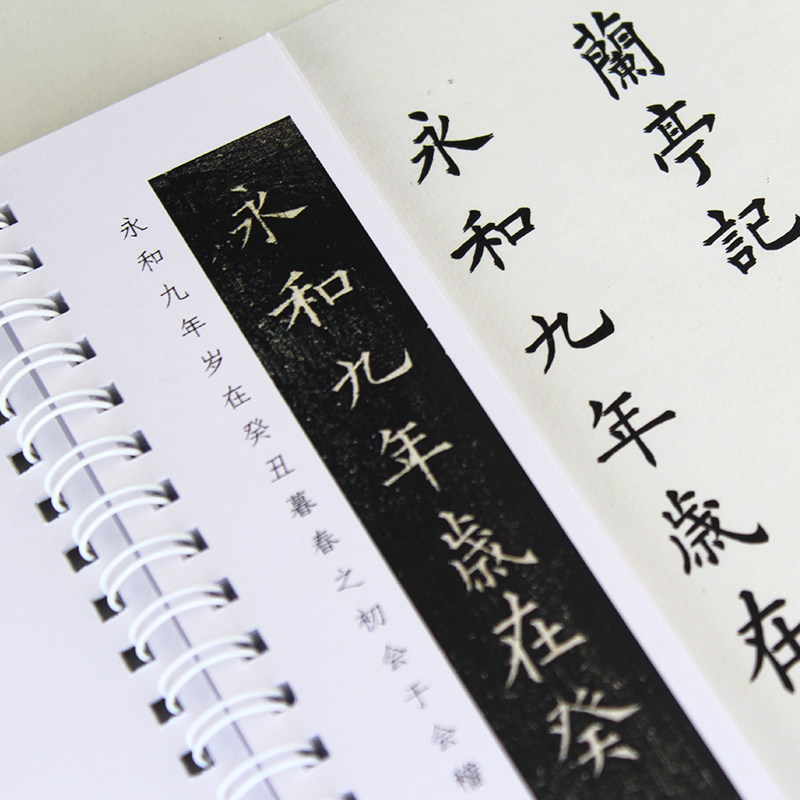 蘭亭記
永和九年歲在
永和九年歲在癸
永和九年岁在癸丑暮春之初会于会稽